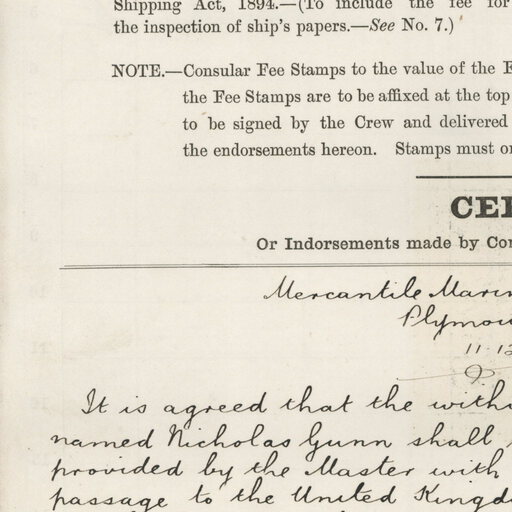 Shipping Act, 1894.—(To include the fee for
the inspection of ship's papers.—See No. 7.)
NOTE.—Consular Fee Stamps to the value of the F
the Fee Stamps are to be affixed at the top
to be signed by the Crew and delivered
the endorsements hereon. Stamps must on
CER
Or Indorsements made by Con
Mercantile Marin
Plymou
11.12
It is agreed that the withi
named Nicholas Gunn shall
provided by the Master with
passage to the United Kingdo